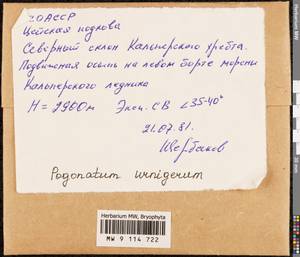 СОАССР
Цейская подкова
Северный склон Кальперского хребта.
Подвижная осыпь на левом борте морены
Кальперского ледника
H = 2900м Эксп. СВ ∠35-40°
21.07.81.
Щербаков
Pogonatum urnigerum
Herbarium MW, Bryophyta
MW 9 114 722